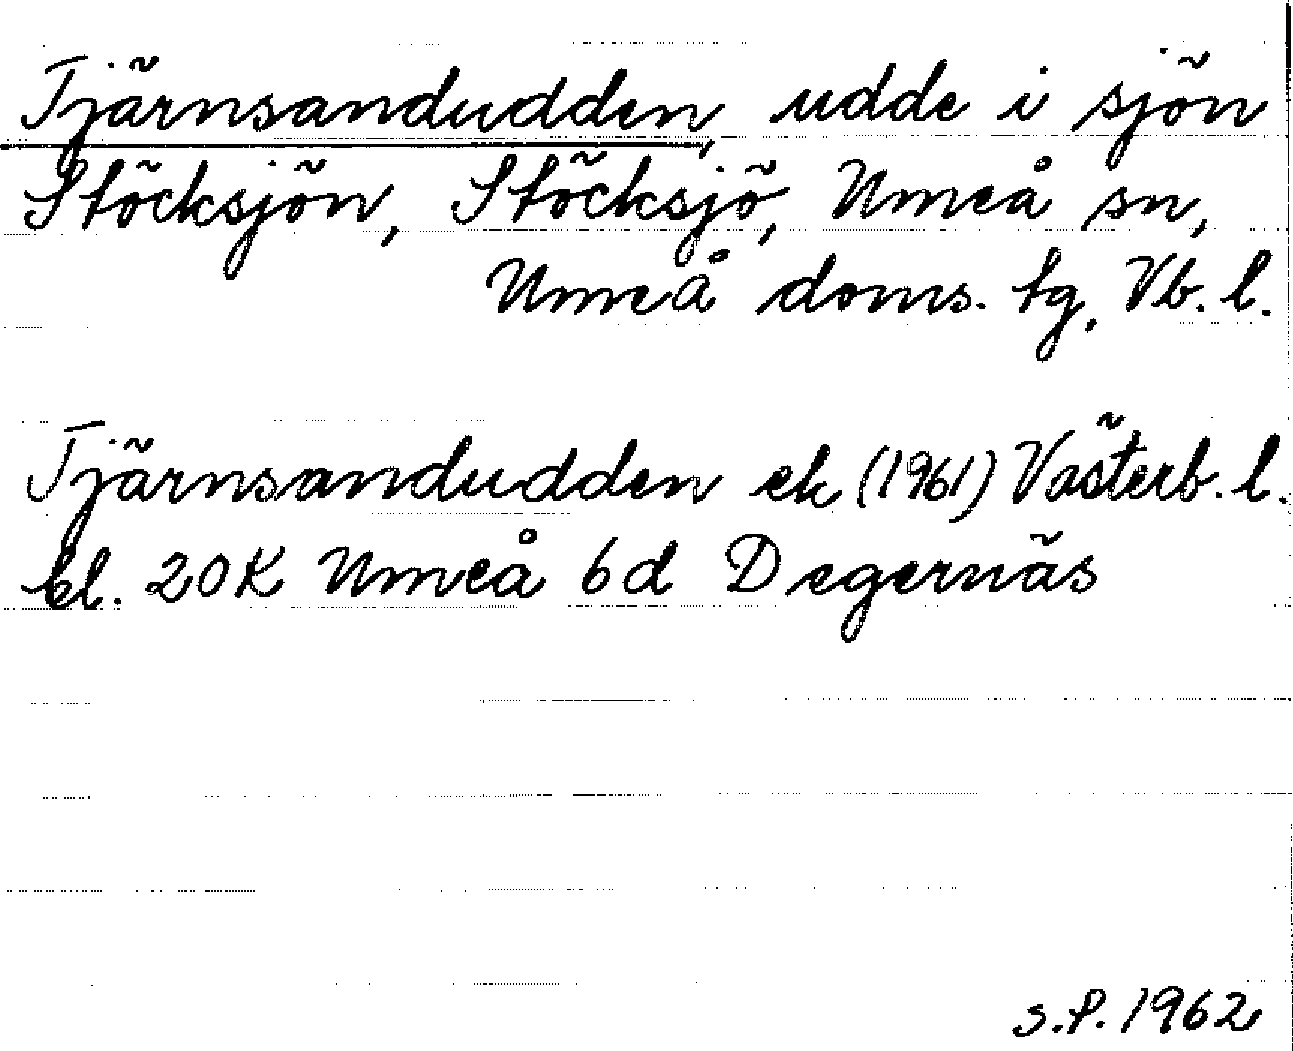 Tjärnsandudden, udde i sjön
Stöcksjön, Stöcksjö, Umeå sn,
Umeå doms. tg, Vb. l.
Tjärnsandudden ek (1961) Västerb. l.
bl. 20K Umeå 6d Degernäs
s.f. 1962